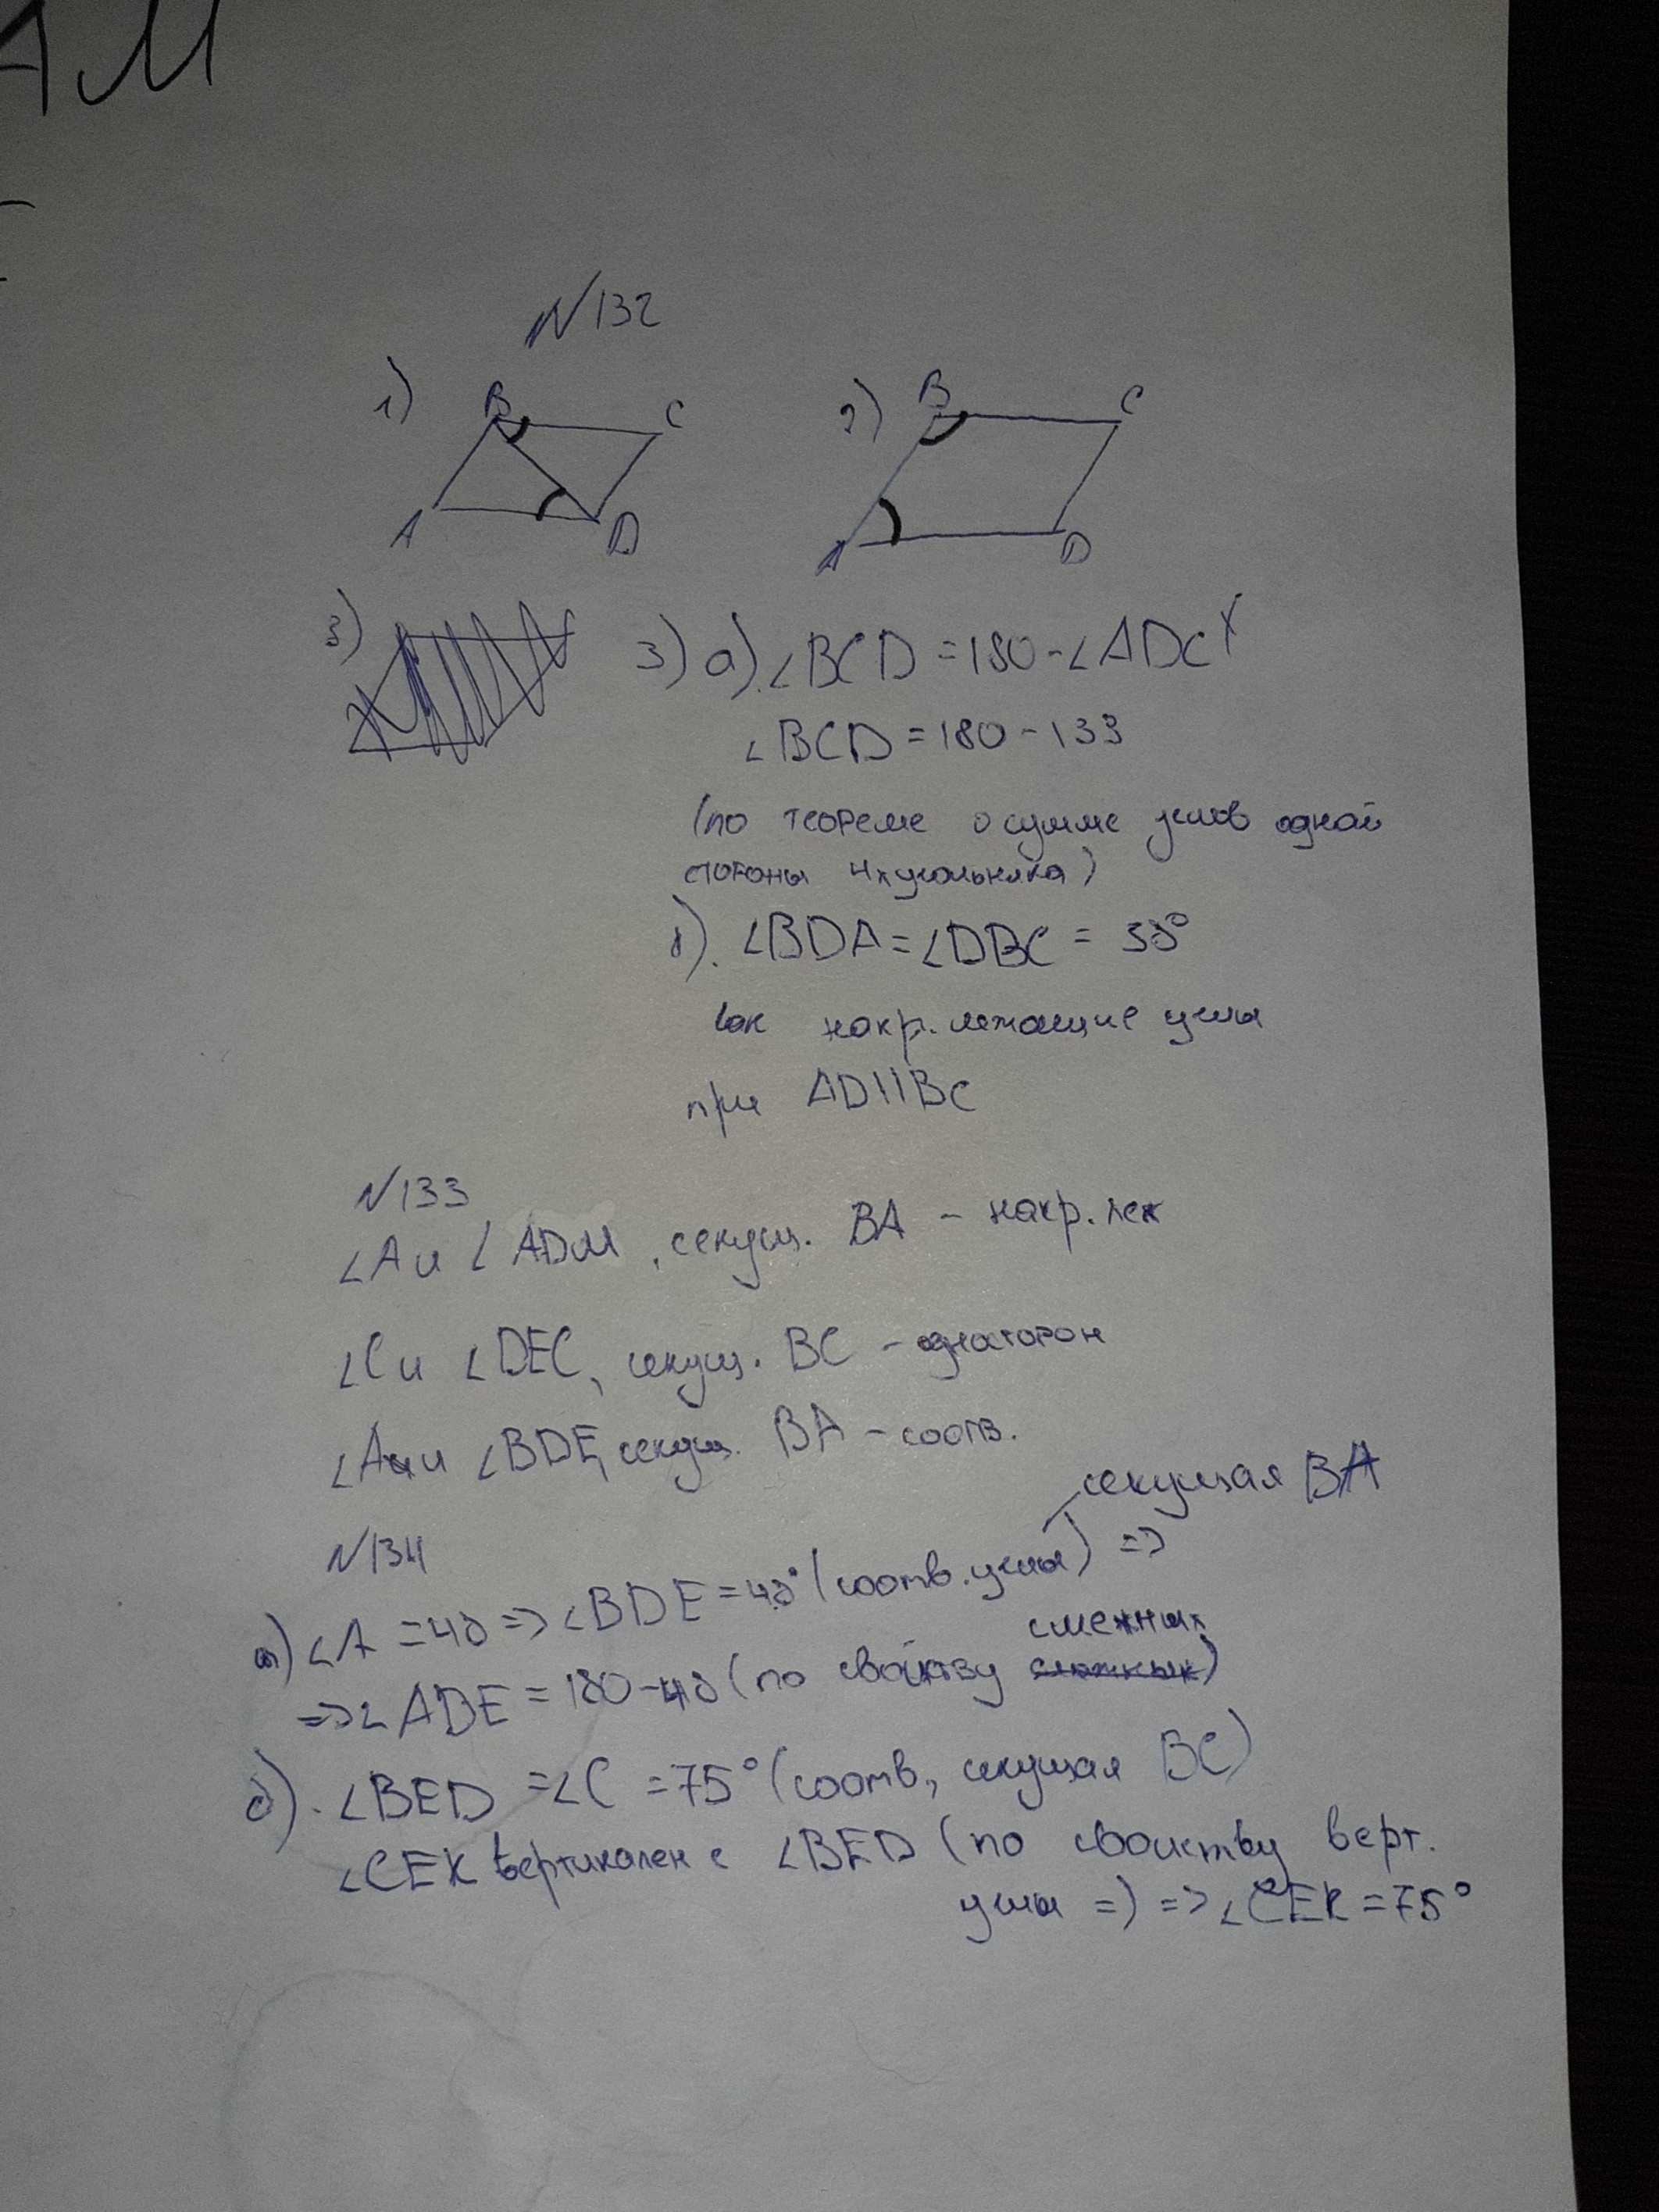 АМ
N132
1)
B
C
A
D
2)
B
C
A
D
3)
3) а). ∠BCD = 180 - ∠ADC
∠BCD = 180 - 133
(по теореме о сумме углов одной
стороны 4хугольника)
б). ∠BDA = ∠DBC = 38°
как накр. лежащие углы
при AD||BC
N133
∠A и ∠ADM, секущ. BA - накр. леж
∠C и ∠DEC, секущ. BC - односторон
∠A и ∠BDE, секущ. BA - соотв.
секущая BA
N134
а) ∠A = 48 => ∠BDE = 48° (соотв. углы) =>
смежных
=> ∠ADE = 180 - 48 (по свойству)
б). ∠BED = ∠C = 75° (соотв., секущая BC)
∠CEK вертикален с ∠BED (по свойству верт.
углы =) => ∠CEK = 75°